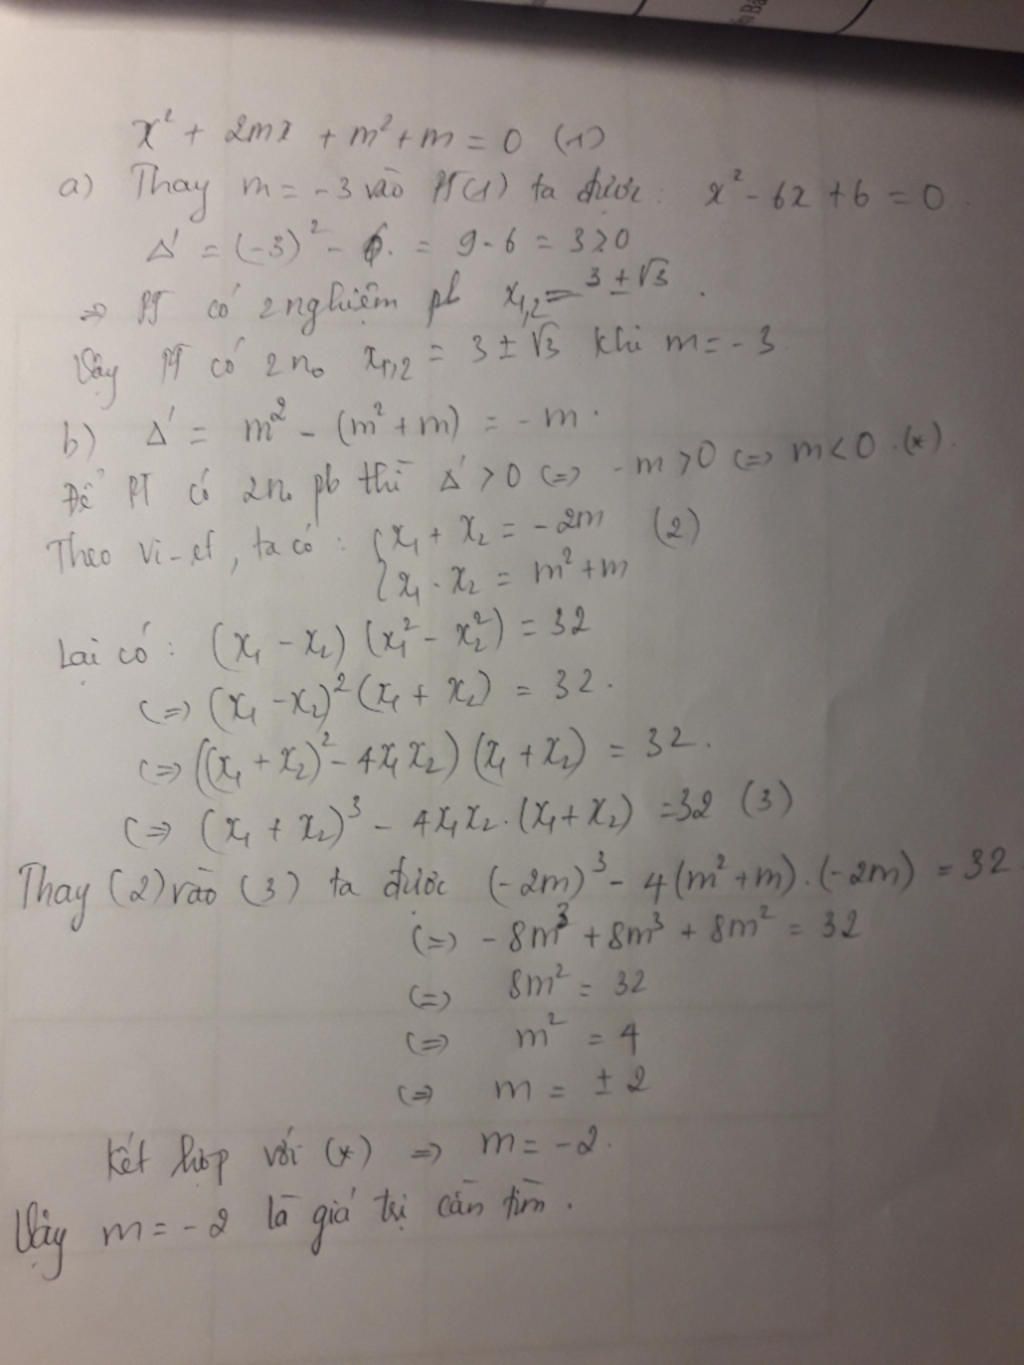 x² + 2mx + m² + m = 0 (1)
a) Thay m = -3 vào PT(1) ta được: x² - 6x + 6 = 0.
Δ' = (-3)² - 6. = 9 - 6 = 3 > 0
=> PT có 2 nghiệm pb x₁,₂ = 3 ± √3.
Vậy PT có 2 n₀ x₁,₂ = 3 ± √3 khi m = -3
b) Δ' = m² - (m² + m) = -m.
Để PT có 2n₀ pb thì Δ' > 0 <=> -m > 0 <=> m < 0. (*).
Theo vi-et, ta có: { x₁ + x₂ = -2m (2)
{ x₁ . x₂ = m² + m
Lại có: (x₁ - x₂) (x₁² - x₂²) = 32
<=> (x₁ - x₂)² (x₁ + x₂) = 32.
<=> ((x₁ + x₂)² - 4x₁x₂) (x₁ + x₂) = 32.
<=> (x₁ + x₂)³ - 4x₁x₂.(x₁ + x₂) = 32 (3)
Thay (2) vào (3) ta được (-2m)³ - 4(m² + m).(-2m) = 32
<=> -8m³ + 8m³ + 8m² = 32
<=> 8m² = 32
<=> m² = 4
<=> m = ± 2
Kết hợp với (*) => m = -2.
Vậy m = -2 là giá trị cần tìm.